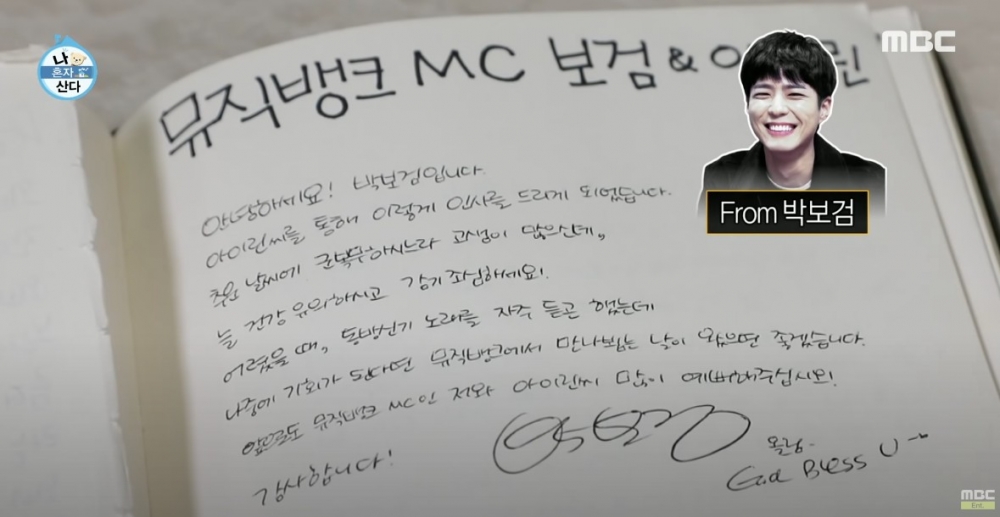 나
혼자
산다
MBC
뮤직뱅크 MC 보검 & 아 린
From 박보검
안녕하세요! 박보검입니다.
아이린씨를 통해 이렇게 인사를 드리게 되었습니다.
추운 날씨에 군복무하시느라 고생이 많으신데,
늘 건강 유의하시고 감기 조심하세요!
어렸을 때, 동방신기 노래를 자주 듣곤 했는데
나중에 기회가 된다면 뮤직뱅크에서 만나뵙는 날이 왔으면 좋겠습니다.
앞으로도 뮤직뱅크 MC인 저와 아이린씨 많이 예뻐해주십시오!
감사합니다!
올림-
God Bless U
MBC
Ent.